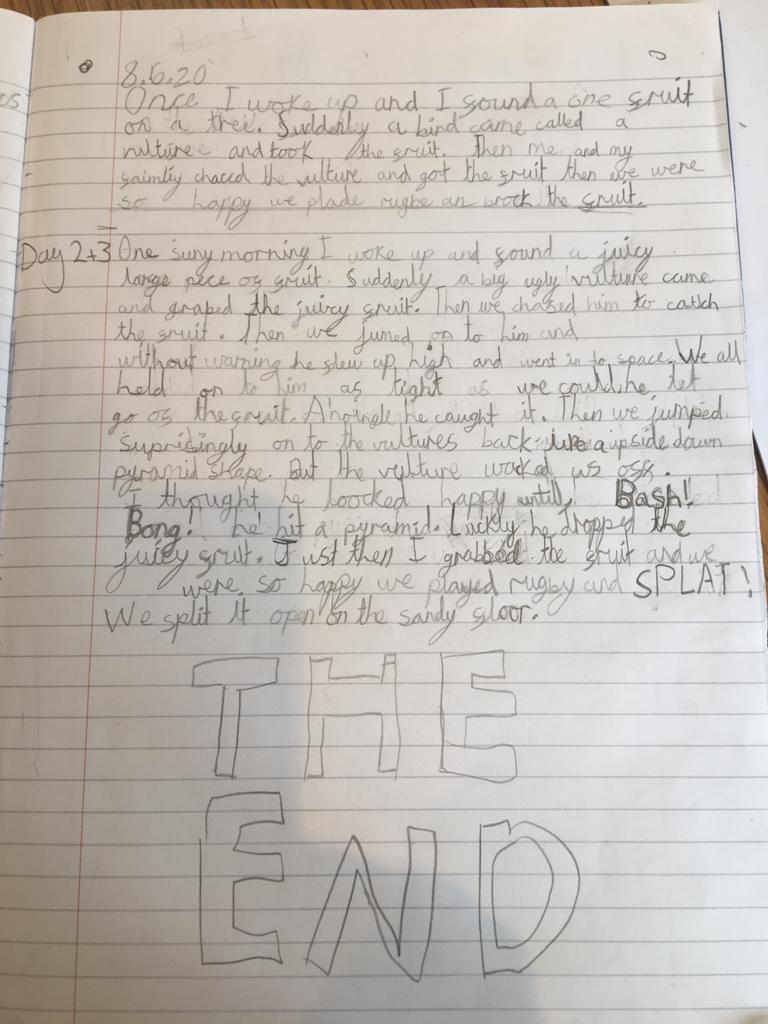 8.6.20
Once I woke up and I found a one fruit
on a tree. Suddenly a bird came called a
vulture and took the fruit. Then me and my
faimliy chaced the vulture and got the fruit then we were
so happy we plade rugbe an brock the fruit.
Day 2+3 One suny morning I woke up and found a juicy
large pece of fruit. Suddenly a big ugly vulture came
and graped the juicy fruit. Then we chazed him to catch
the fruit. Then we jumed on to him and
without warning he flew up high and went in to space. We all
held on to him as tight as we could, he let
go of the fruit. he caught it. Then we jumped
suprisingly on to the vultures back like a upside down
pyramid shape. But the vulture wacked us off.
I thought he loocked happy untill, Bash!
Bong! he hit a pyramid. Luckly he dropped the
juicy fruit. Just then I grabbed the fruit and we
were so happy we played rugby and SPLAT!
We split it open on the sandy floor.
THE
END